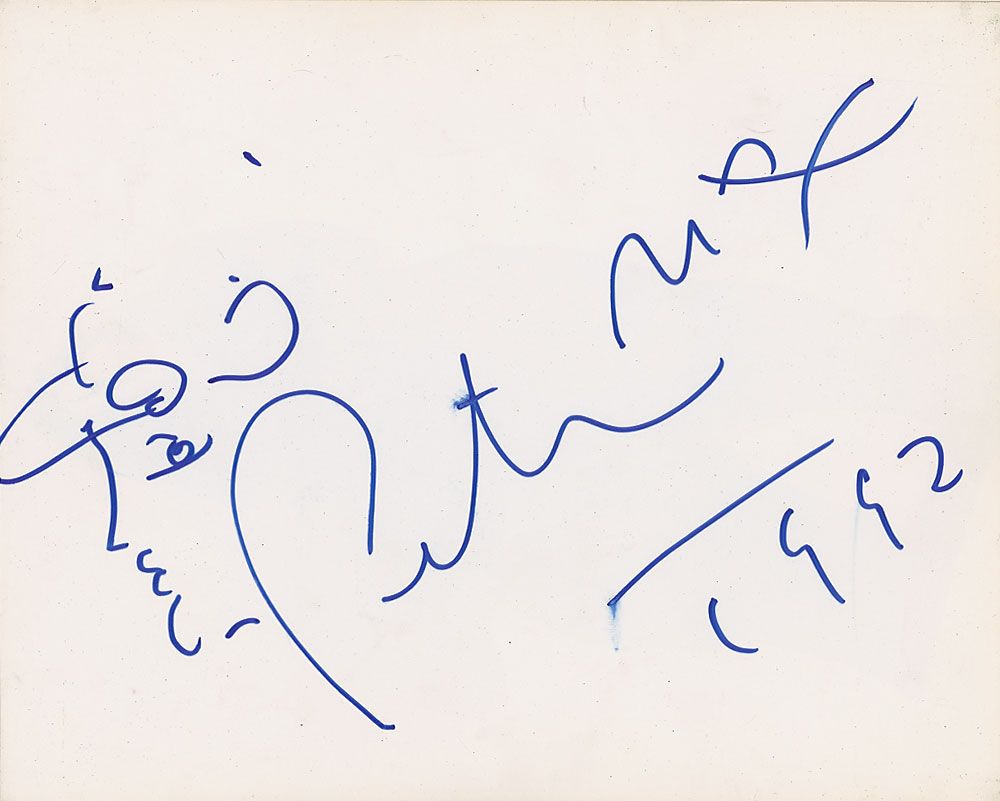 Peter Max
1992